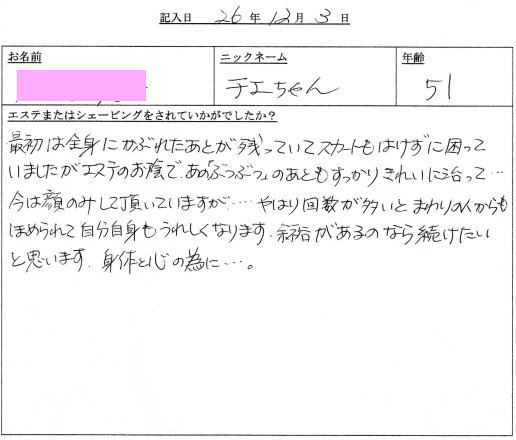 記入日 26年 12月 3日
お名前 ニックネーム 年齢
チエちゃん 51
エステまたはシェービングをされていかがでしたか?
最初は全身にかぶれたあとが残っていてスカートもはけずに困って
いましたがエステのお陰であの「ぶつぶつ」のあともすっかりきれいに治って…
今は顔のみして頂いていますが…‥やはり回数が多いとまわりの人からも
ほめられて自分自身もうれしくなります.余裕があるのなら続けたい
と思います.身体と心の為に…。